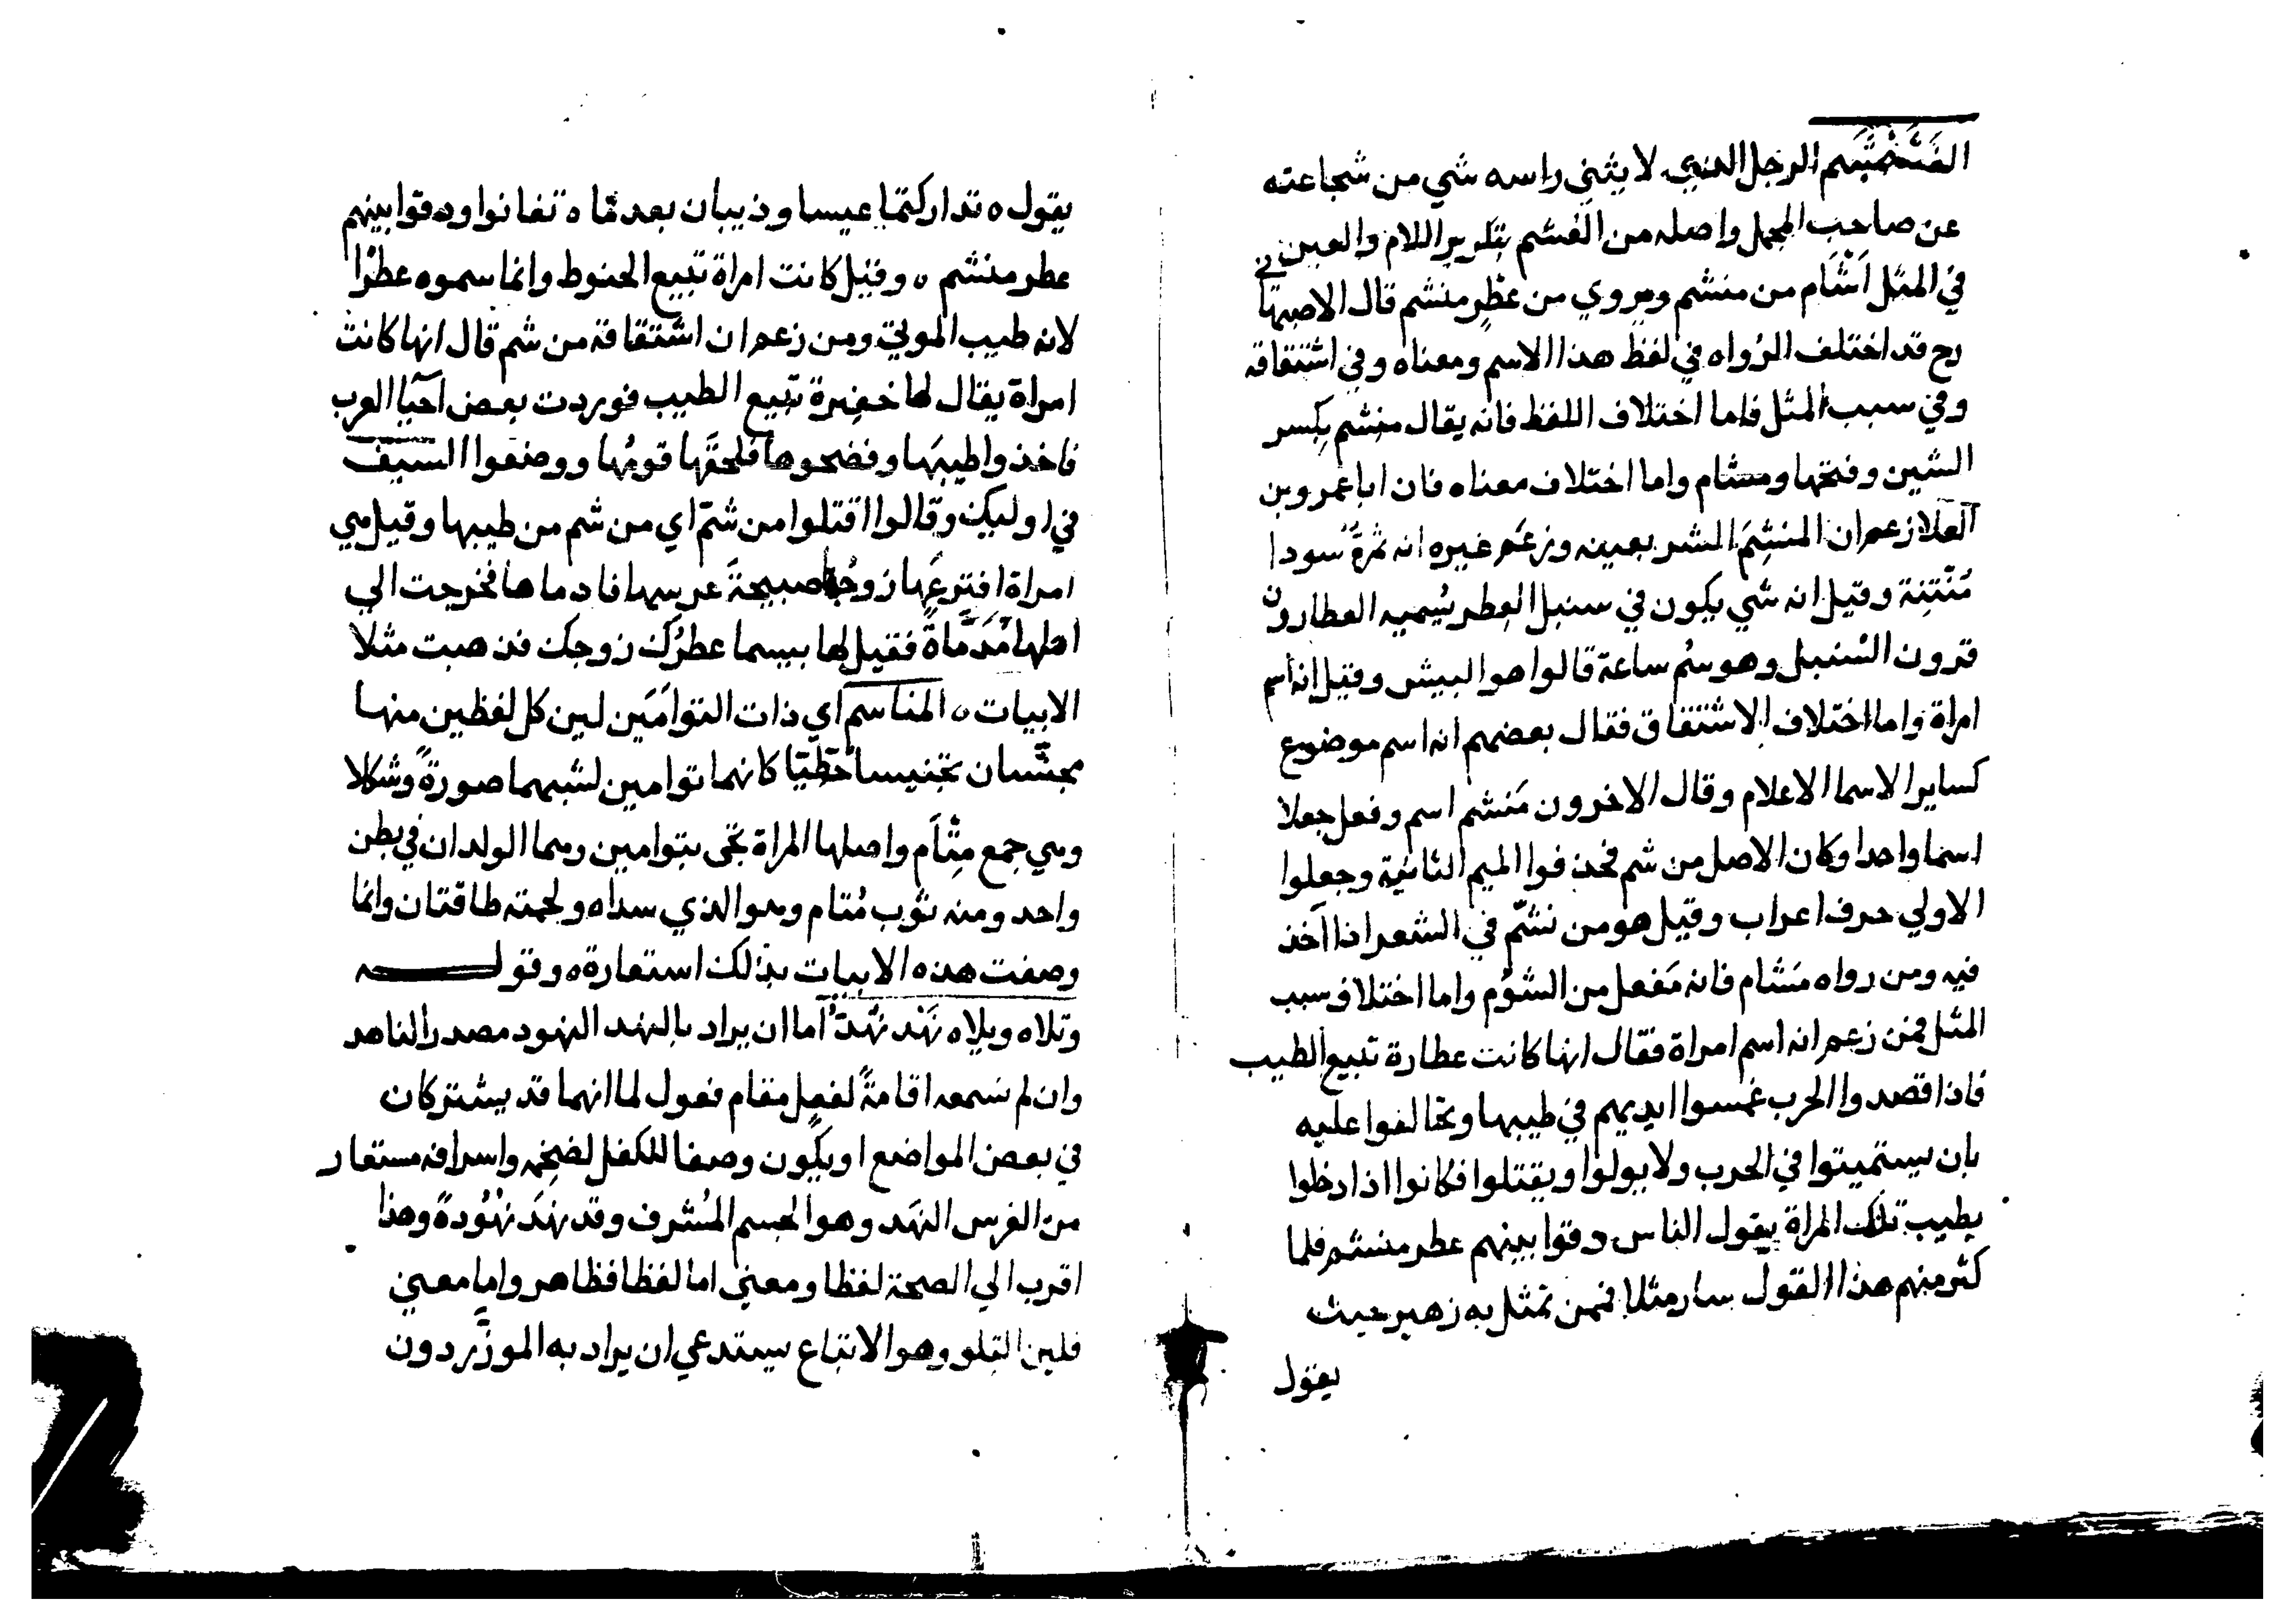 الغشمشم الرجل الذي لا يثني راسه شي من شجاعته
عن صاحب المجمل واصله من الغشم بتكرير اللام والعين
في المثل اَشْأَم من منشم ويروي من عطر منشم قال الاصبهاني
رح قد اختلف الرُواه في لفظ هذا الاسم ومعناه وفي اشتقاقه
وفي سبب المثل فاما اختلاف اللفظ فانه يقال منشِم بكسر
الشين وفتحها ومشام واما اختلاف معناه فان ابا عمرو بن
العلا زعم ان المنشِمَ الشر بعينه وزعَم غيره انه ثمرةٌ سودا
مُنْتِنة وقيل انه شي يكون في سنبل العطر يُسميه العطارون
قرون السُنبل وهو سُم ساعة قالوا هو البيش وقيل انه اسم
امراة واما اختلاف الاشتقاق فقال بعضهم انه اسم موضوع
كساير الاسما الاعلام وقال الاخرون مَنشم اسم وفعل جعلا
اسما واحدا وكان الاصل من شم فحذفوا الميم الثانية وجعلوا
الاولي حرف اعراب وقيل هو من نشّم في الشعر اذا اَخذ
فيه ومن رواه مَشام فانه مَفعل من الشوُم واما اختلاف سبب
المثل فمن زعم انه اسم امراة فقال انها كانت عطارة تبيع الطيب
فاذا قصدوا الحرب غمسوا ايديهم في طيبها وتحالفوا عليه
بان يستميتوا في الحرب ولا يولوا ويقتلوا فكانوا اذا دخلوا
بطيب تلك المراة يقول الناس دقوا بينهم عطر منشم فلما
كثر منهم هذا القول سار مثلا فمن تمثل به زهير حيث
يقول
يقول ه تداركتما عيسا وذبيان بعد ما ه تفانوا ودقوا بينهم
عطر منشم ه وقيل كانت امراة تبيع الحنوط وانما سموه عطرًا
لانه طيب الموتي ومن زعم ان اشتقاقه من شم قال انها كانت
امراة يقال لها خفيرة تبيع الطيب فوردت بعض احيا العرب
فاخذوا طيبَها وفضحوها فلحقَها قومُها ووضعوا السيف
في اوليك وقالوا اقتلوا من شمّ اي من شم من طيبها وقيل هي
امراة افترعَها زوجُها صبيحةَ عرسها فادماها فخرجت الي
اهلها مُدَمّاةً فقيل لها بيسما عطرُك زوجك فذهبت مثلا
الابيات ه المتاسم اي ذات التواَمَين لين كل لفظين منها
مجنَّسان تجنيسا خَطّيّا كانهما توامين لشبههما صورةً وشكلا
وهي جمع مِتْأَم واصلها المراة تجي بتوامين وهما الولدان في بطن
واحد ومنه ثوب مُتام وهو الذي سداه ولحمته طاقتان وانما
وصفت هذه الابيات بذلك استعارة ه وقوله
وتلاه ويلاه نَهْد يَهُدّ اما ان يراد بالنهد النهود مصدر الناهد
وان لم نسمعه اقامةً لفعل مقام فعول لما انهما قد يشتركان
في بعض المواضع او يكون وصفا للكفل لضخمه واسرافه مستعار
من الفرس النهَد وهو الجسم المُشرف وقد نهَدَ نُهُودةً وهذا
اقرب الي الصحة لفظا ومعني اما لفظا فظاهر واما معني
فلين التلو وهو الاتباع يستدعي ان يراد به الموزَّر دون